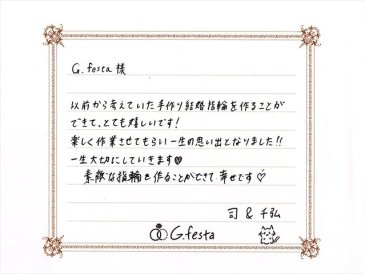 G.festa 様
以前から考えていた手作り結婚指輪を作ることが
できて、とても嬉しいです!
楽しく作業させてもらい一生の思い出となりました!!
一生大切にしていきます♥
素敵な指輪を作ることができて幸せです♡
司 & 千弘
G.festa